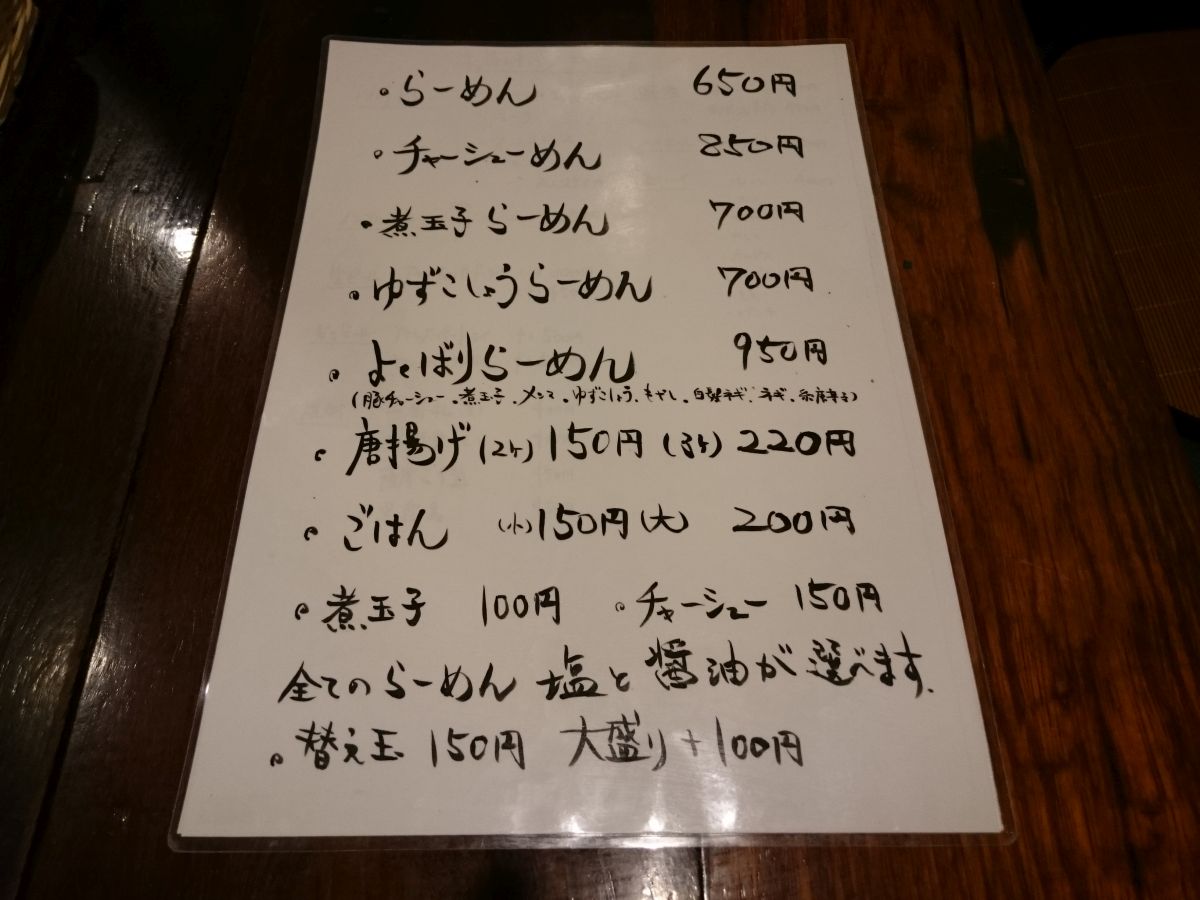 ・らーめん 650円
・チャーシューめん 850円
・煮玉子らーめん 700円
・ゆずこしょうらーめん 700円
・よくばりらーめん 950円
(豚チャーシュー、煮玉子、メンマ、ゆずこしょう、もやし、白髪ネギ、ネギ、糸唐辛子)
・唐揚げ(2ヶ) 150円 (3ヶ) 220円
・ごはん (小)150円(大) 200円
・煮玉子 100円 ・チャーシュー 150円
全てのらーめん 塩と醤油が選べます.
・替え玉 150円 大盛り+100円